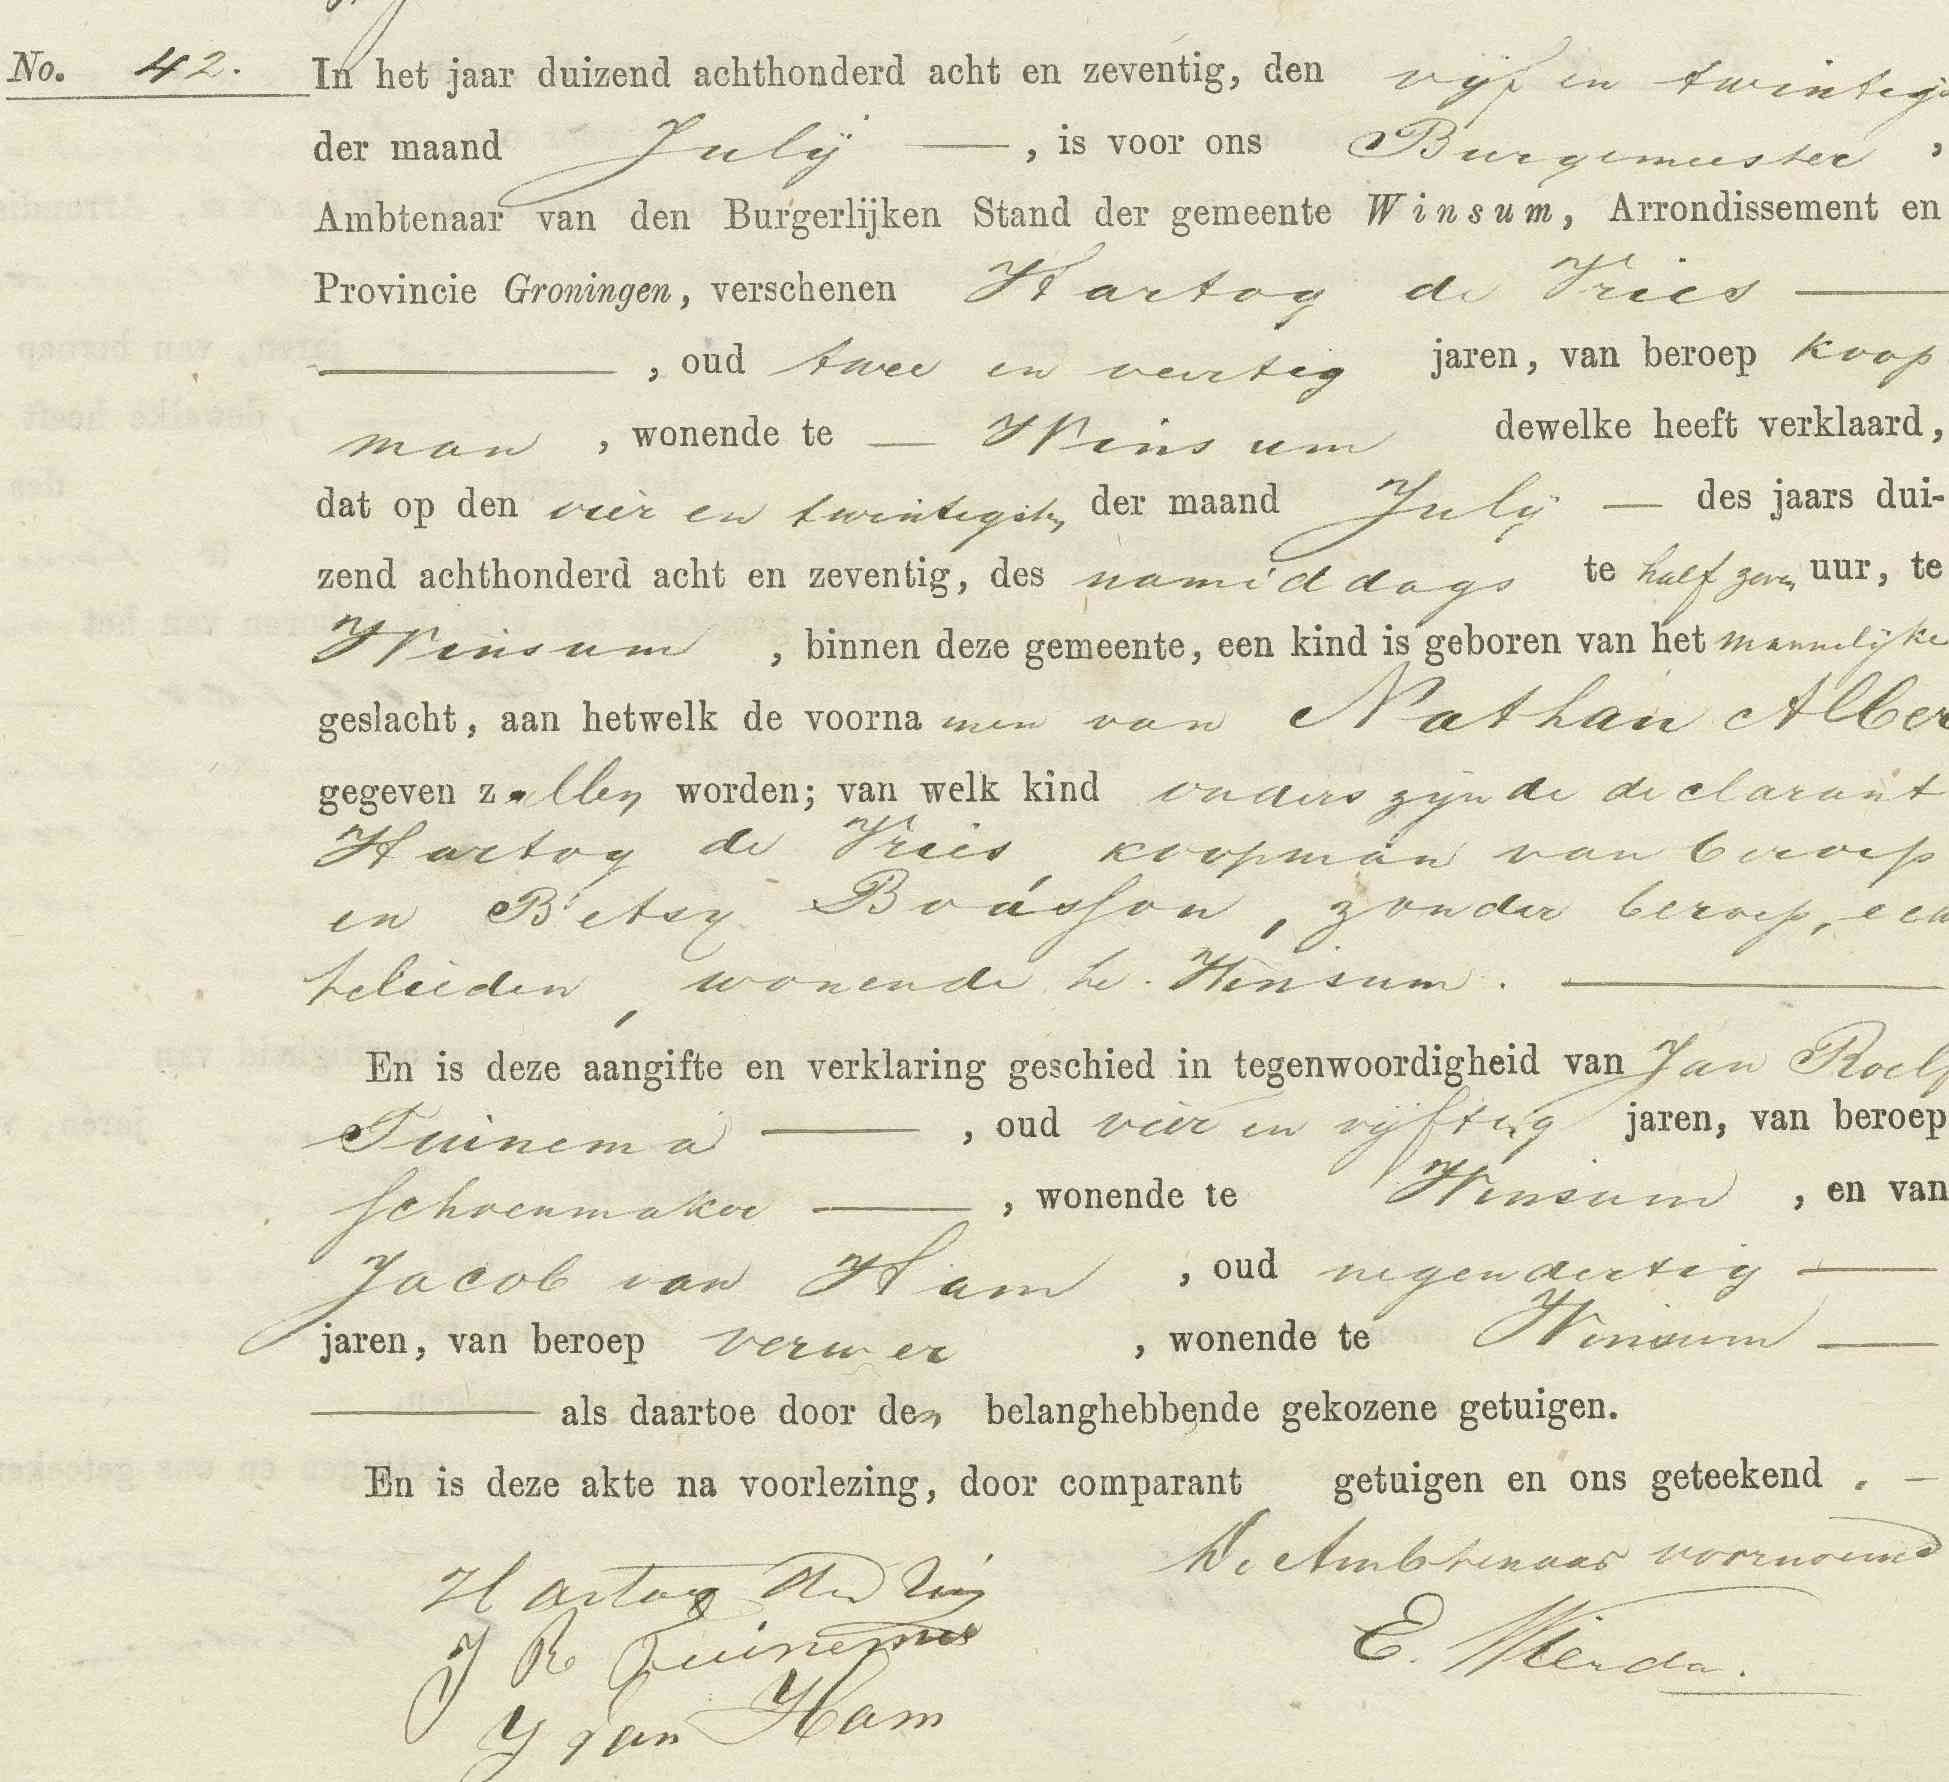 No. 42. In het jaar duizend achthonderd acht en zeventig, den vijf en twintigs
der maand Julij —, is voor ons Burgemeester,
Ambtenaar van den Burgerlijken Stand der gemeente Winsum, Arrondissement en
Provincie Groningen, verschenen Hartog de Vries —
—, oud twee en veertig jaren, van beroep koop
man, wonende te — Winsum dewelke heeft verklaard,
dat op den vier en twintigsten der maand Julij — des jaars dui-
zend achthonderd acht en zeventig, des namiddags te half zeven uur, te
Winsum, binnen deze gemeente, een kind is geboren van het mannelijke
geslacht, aan hetwelk de voornamen van Nathan Alber
gegeven zullen worden; van welk kind ouders zijn de declarant
Hartog de Vries, koopman van beroep
en Betsy Boásson, zonder beroep, ech
telieden, wonende te Winsum. —
En is deze aangifte en verklaring geschied in tegenwoordigheid van Jan Roelf
Tuinema —, oud vier en vijftig jaren, van beroep
schoenmaker —, wonende te Winsum, en van
Jacob van Ham, oud negendertig —
jaren, van beroep verwer, wonende te Winsum —
— als daartoe door den belanghebbende gekozene getuigen.
En is deze akte na voorlezing, door comparant getuigen en ons geteekend. —
De Ambtenaar voornoemd
Hartog de Vries
J R Tuinema
E. Wierda.
J van Ham